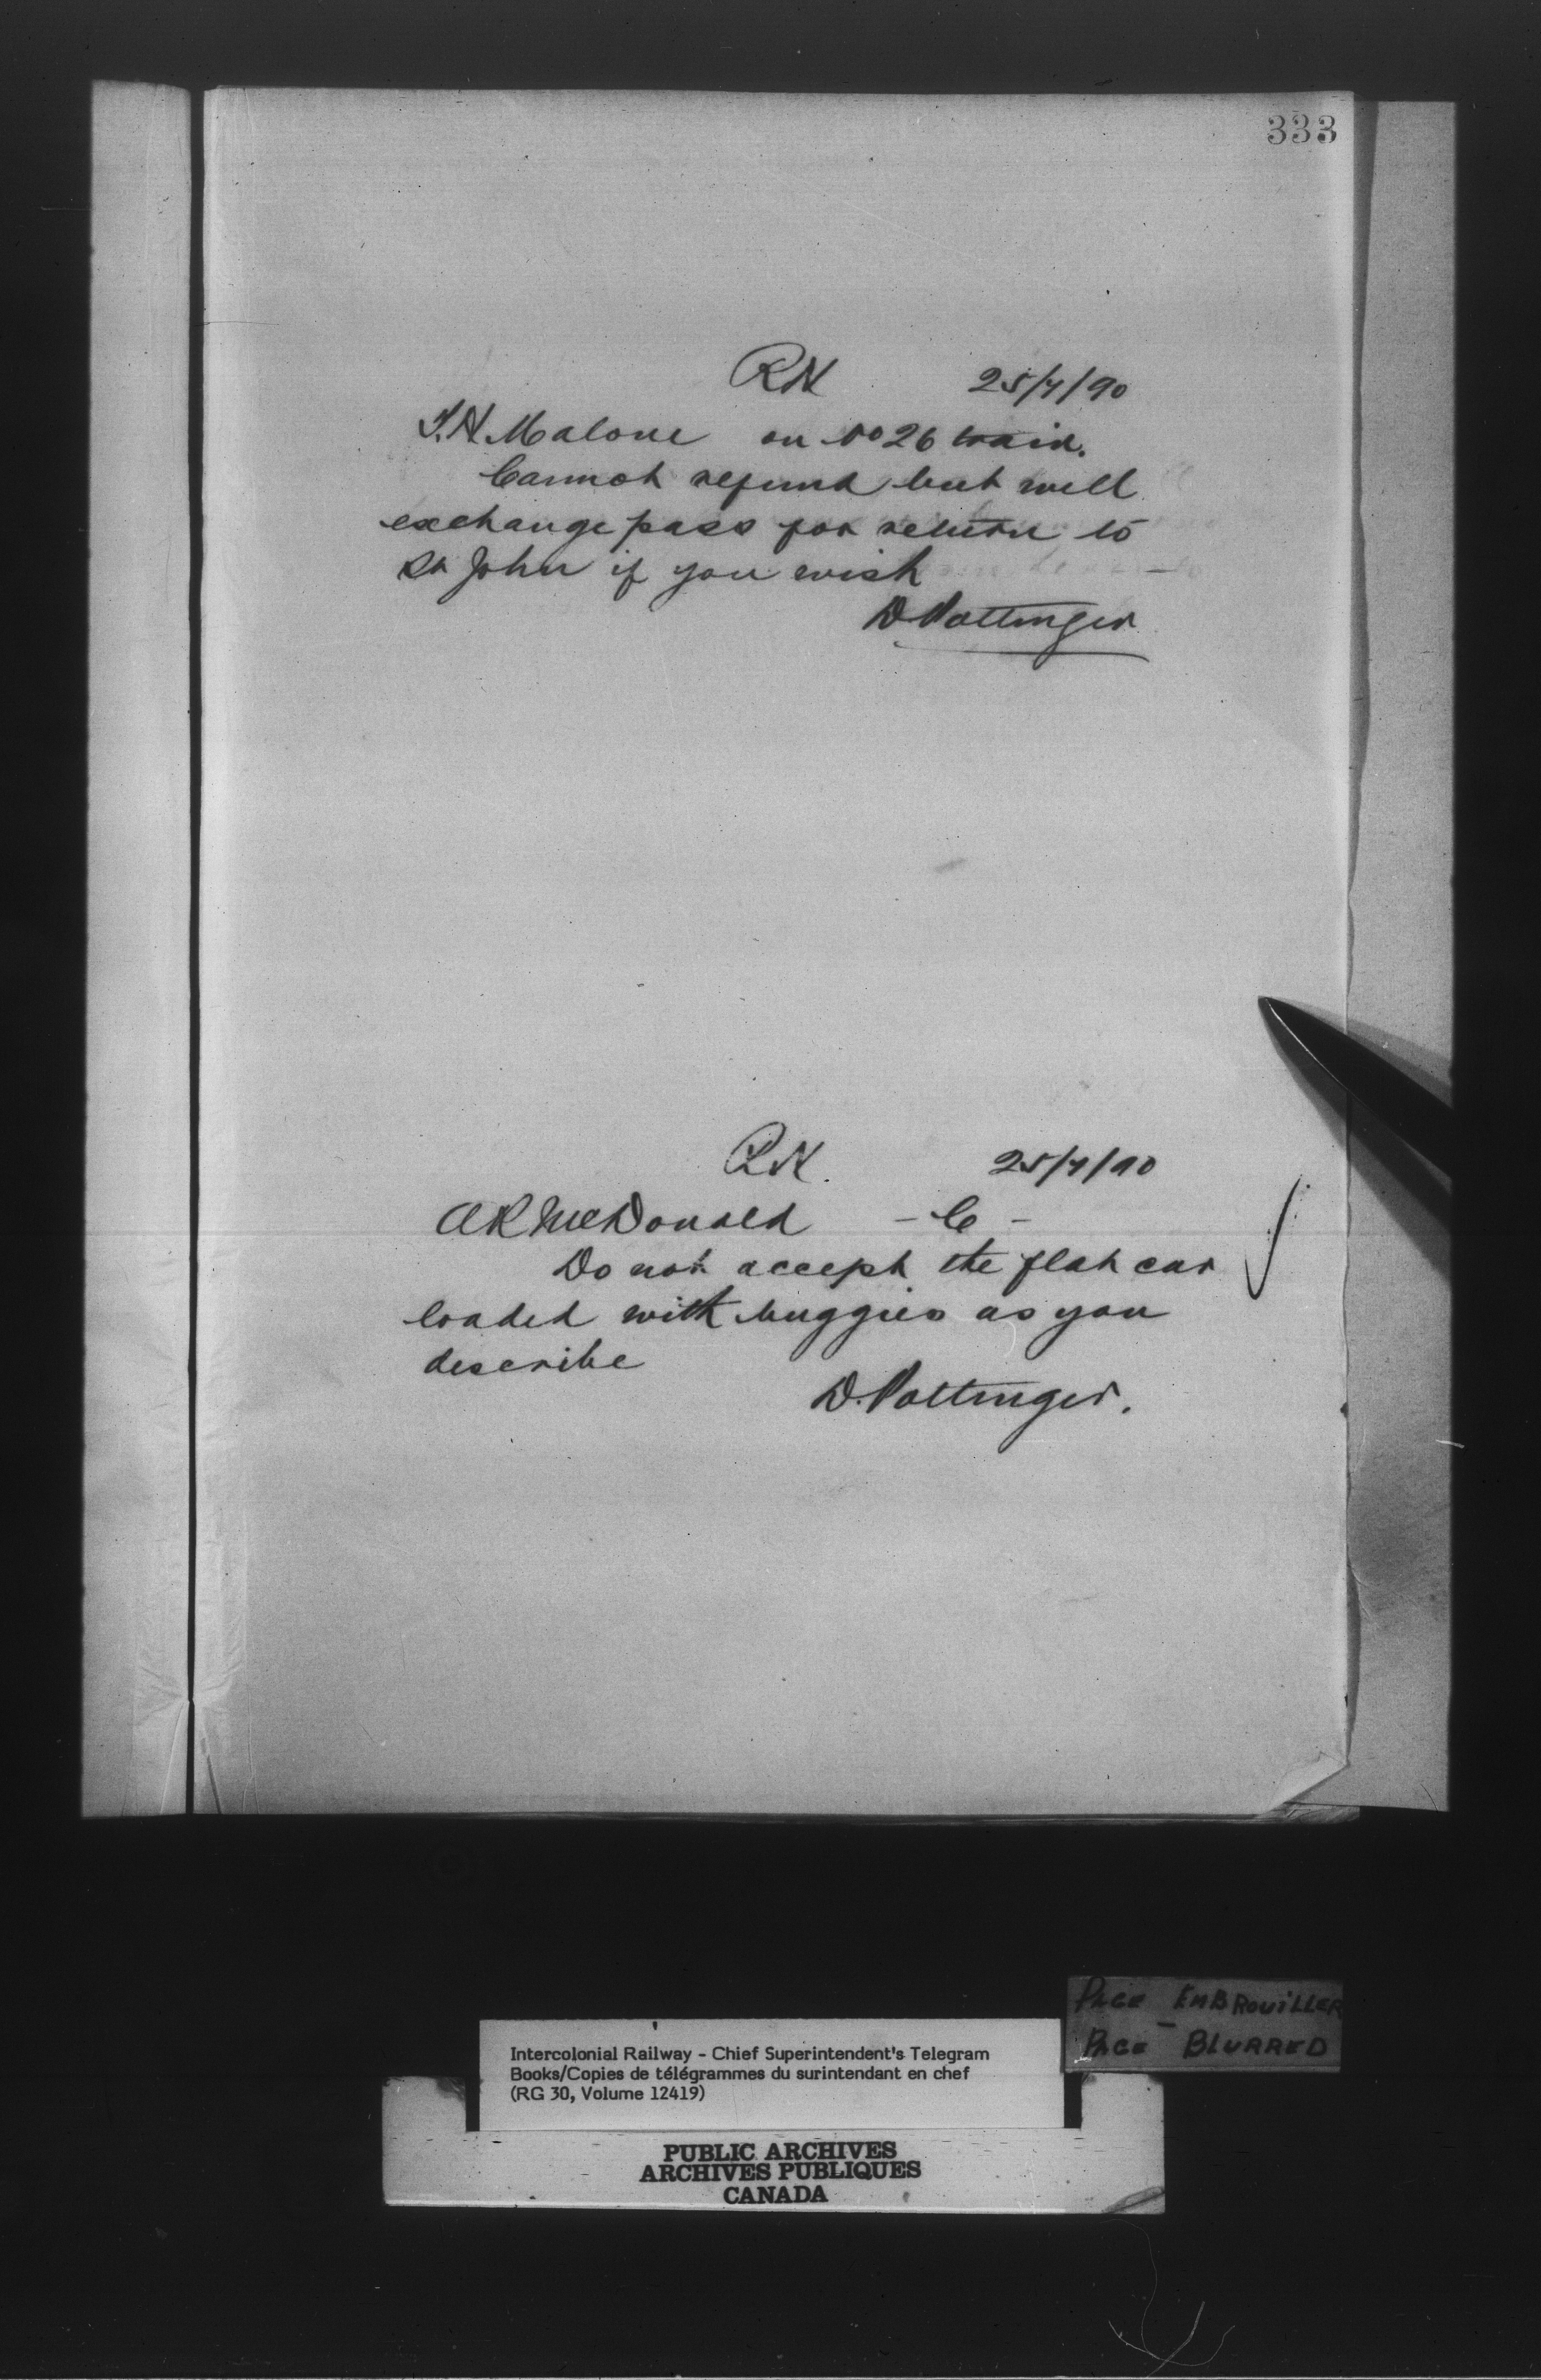 333
RN 25/7/90
T.N. Malone on No 26 train.
Cannot refund but will
exchange pass for return to
St John if you wish
D Pottinger
RN. 25/7/90
A R McDonald - C -
Do not accept the flat car
loaded with buggies as you
describe
D. Pottinger.
PAGE EMBROUILLER
PAGE BLURRED
Intercolonial Railway - Chief Superintendent's Telegram
Books/Copies de télégrammes du surintendant en chef
(RG 30, Volume 12419)
PUBLIC ARCHIVES
ARCHIVES PUBLIQUES
CANADA